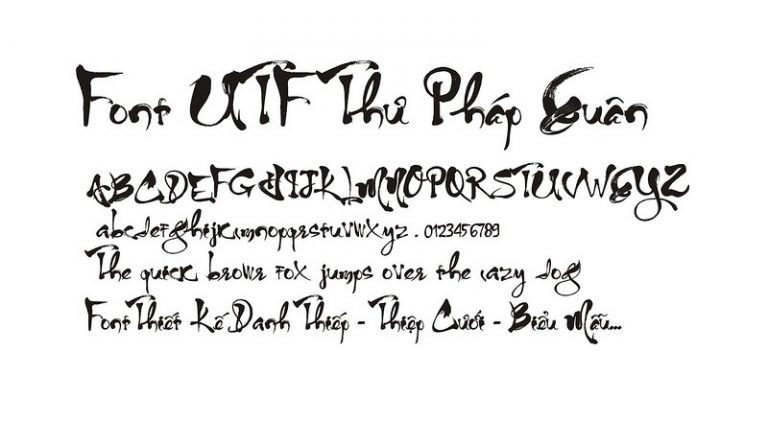 Font UTF Thư Pháp Xuân
ABCDEFGHIJKLMNOPQRSTUVWXYZ
abcdefghijklmnopqrstuvwxyz . 0123456789
The quick brown fox jumps over the lazy dog
Font Thiết Kế Danh Thiếp - Thiệp Cưới - Biểu Mẫu...